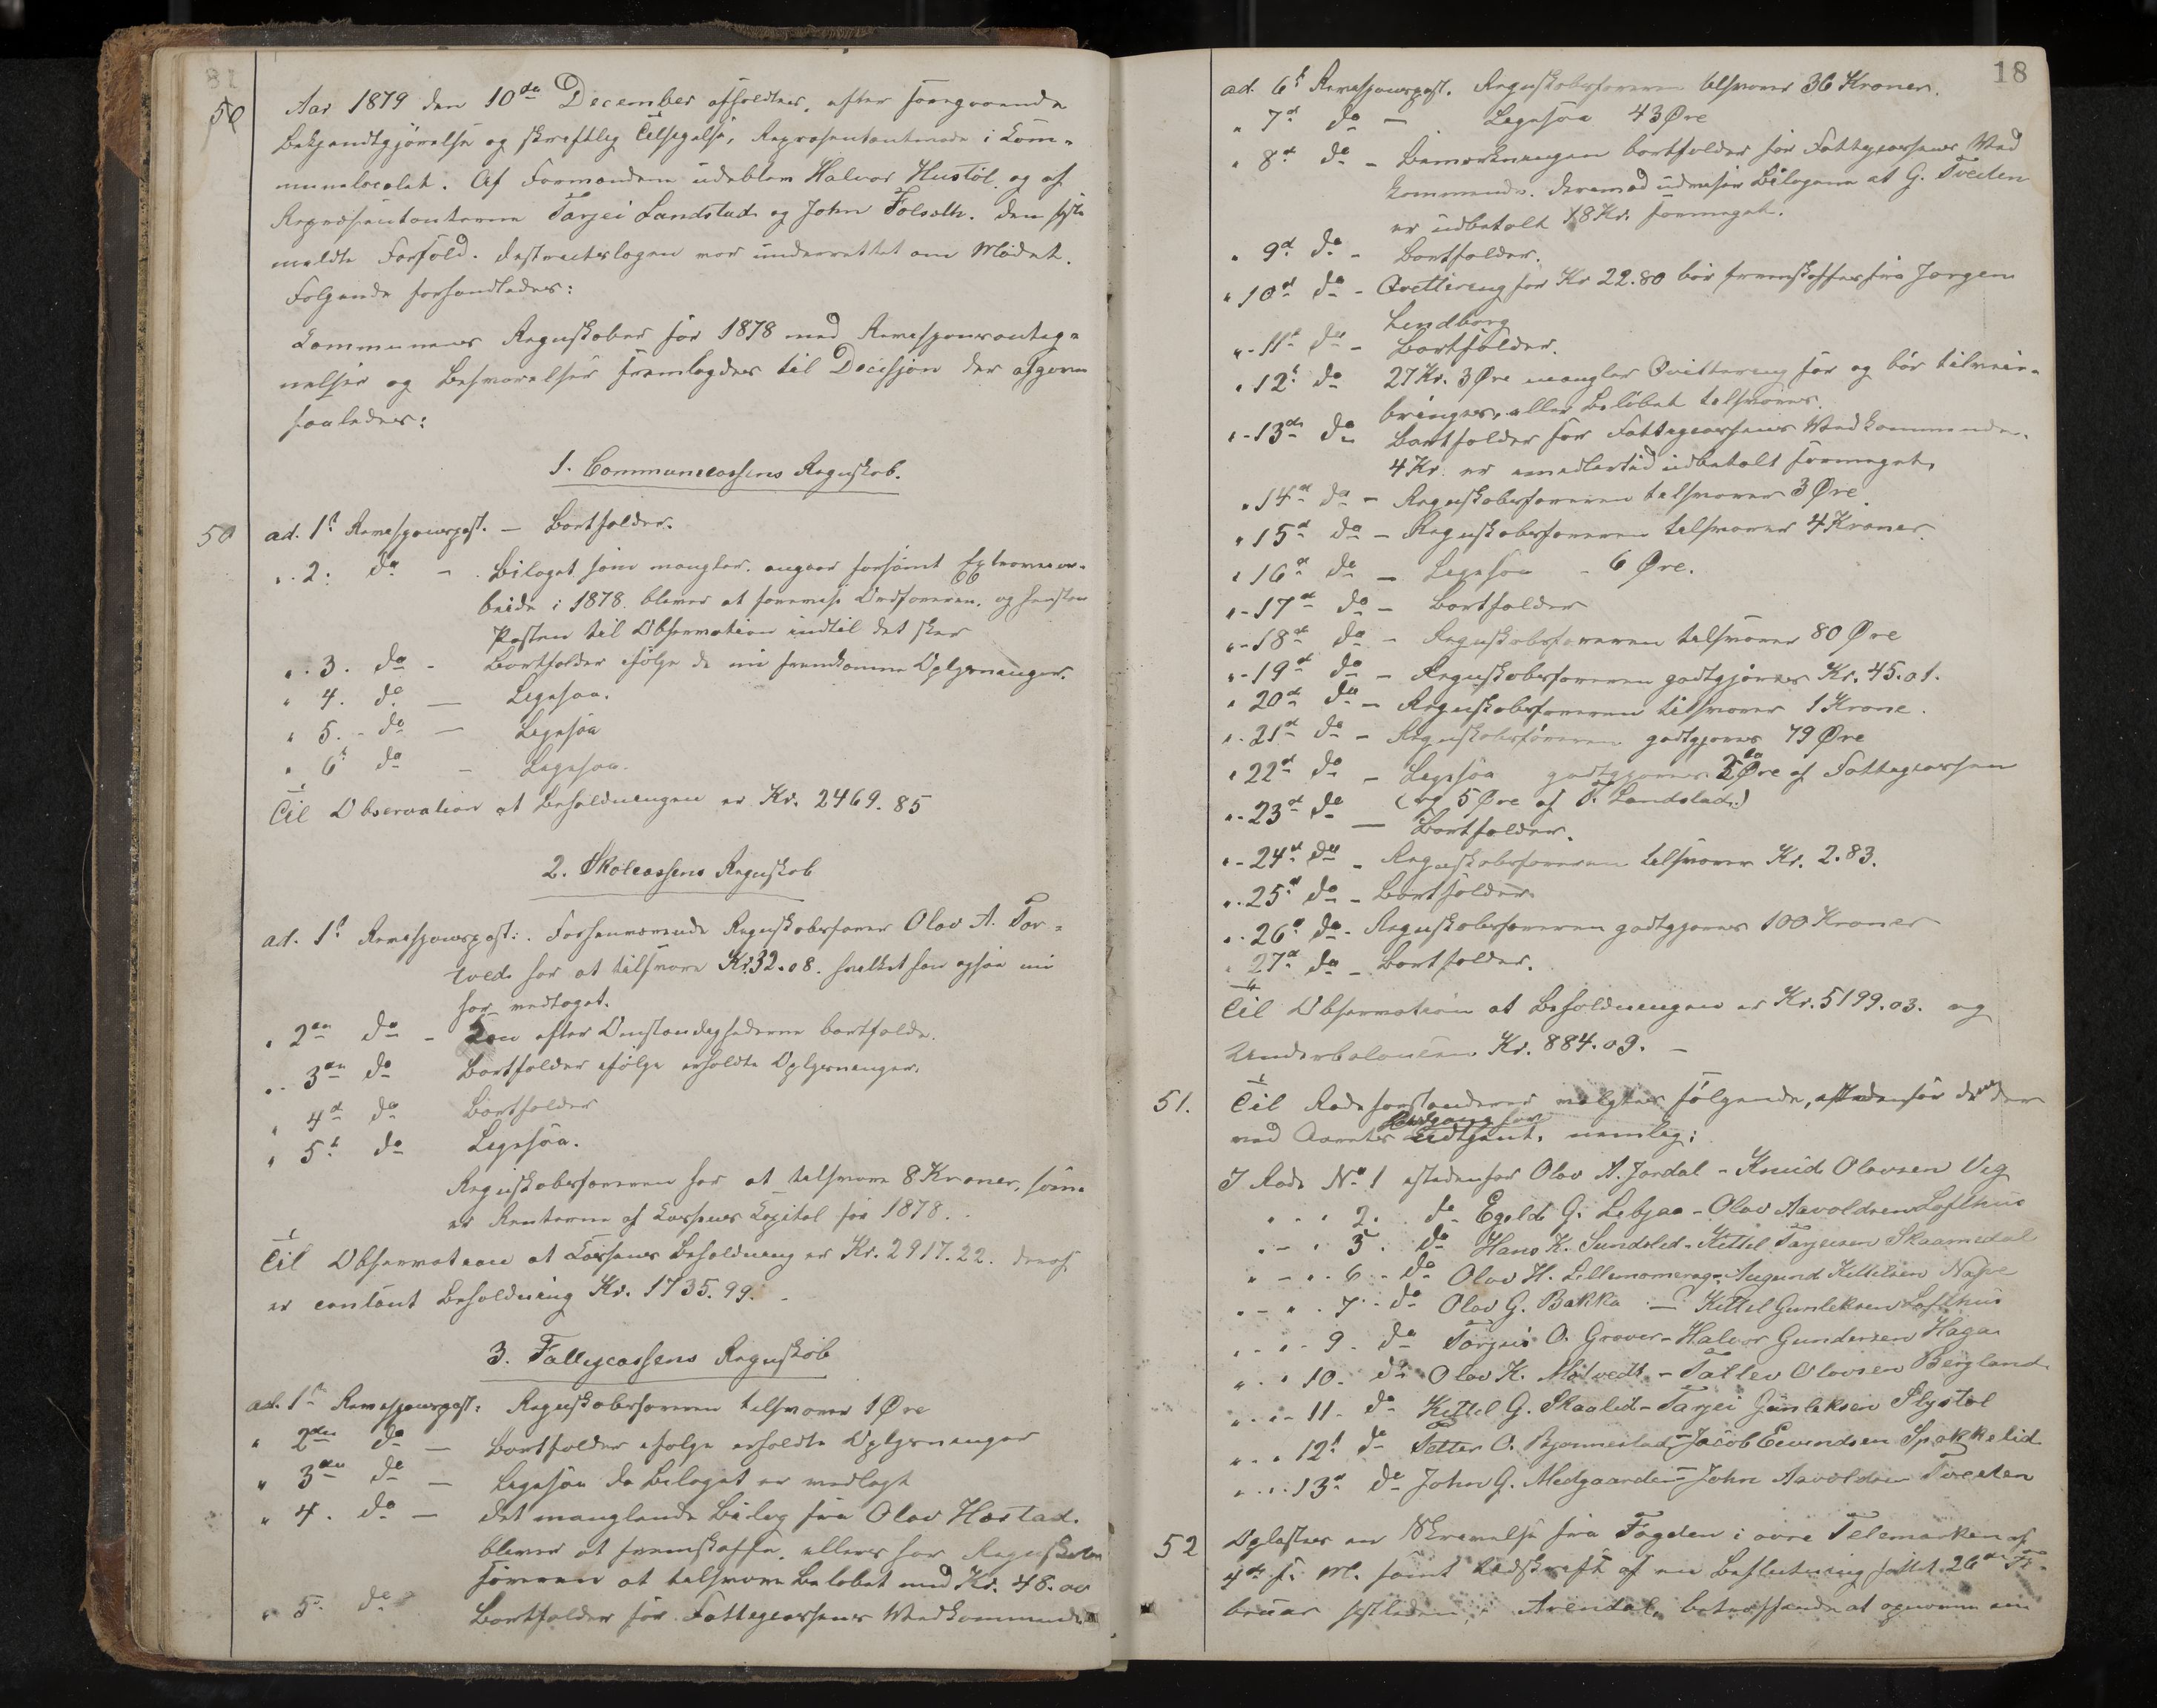 50
Aar 1879 den 10de December afholdtes, efter foregaaende
Bekjendtgjørelse og skriftlig Tilsigelse, Repræsentantmøde i Com-
munelocalet. Af Formændene udeblev Halvor Hustøl og af
Repræsentanterne Tarjei Landstad og John Folseth. den sidst
meldte Forfald. Distriktslægen var underrettet om Mødet.
Følgende forhandledes:
Communens Regnskaber for 1878 med Revisjonsanteg-
nelser og Besvarelser fremlagdes til Decisjon der afgaves
saaledes:
1. Communecassens Regnskab.
50 ad. 1t Revisjonspost. — Bortfalder.
" 2. do — Bilaget som mangler angaar forsømt
beide i 1878. bliver at forevise Ordføreren, og
Posten til Observation indtil det sker
" 3. do - Bortfalder ifølge de nu fremkomne Oplysninger.
" 4. do — Ligesaa.
" 5. do — Ligesaa
" 6t do — Ligesaa.
Til Observation at Beholdningen er Kr. 2469.85
2. Skolecassens Regnskab
ad. 1t Revisjonspost: Forhenværende Regnskabsfører Olav A. Tor-
tved har at tilsvare Kr. 32.08. hvilket han ogsaa nu
har vedtaget.
" 2den do - Kan efter Omstændighederne bortfalde.
" 3den do Bortfalder ifølge erholdte Oplysninger.
" 4d do Bortfalder
" 5t do Ligesaa.
Regnskabsføreren har at tilsvare 8 Kroner, som
er Renterne af Cassens Capital for 1878.
Til Observation at Cassens Beholdning er Kr. 2917.22. deraf
er contant Beholdning Kr. 1735.99.
3. Fattigcassens Regnskab
ad. 1t Revisjonspost: Regnskabsføreren tilsvarer 1 Øre
" 2den do — Bortfalder ifølge erholdte Oplysninger
" 3den do — Ligesaa da Bilaget er vedlagt
" 4. do — Det manglende Bilag fra Olav Hæstad.
bliver at fremskaffe, ellers har Regnskabs
føreren at tilsvare Beløbet med Kr. 48.00
" 5t do Bortfalder for Fattigcassens Vedkommende
18
ad. 6t Revisjonspost. Regnskabsføreren tilsvarer 36 Kroner.
" 7d do — Ligesaa 43 Øre
" 8d do - Bemærkningen bortfalder for Fattigcassens Ved
kommende. Derimod udviser Bilagene at G. Tveiten
er udbetalt 18 Kr. formeget.
" 9d do - Bortfalder.
" 10d do - Qvittering for Kr 22.80 bør fremskaffes fra Jørgen
Lindborg
" 11t do - Bortfalder.
" 12t do 27 Kr. 3 Øre mangler Qvittering for og bør tilveie-
bringes, eller Beløbet tilsvares.
" 13de do Bortfalder for Fattigcassens Vedkommende.
4 Kr. er imidlertid udbetalt formeget.
" 14d do - Regnskabsføreren tilsvarer 3 Øre.
" 15d do - Regnskabsføreren tilsvarer 4 Kroner.
" 16d do - Ligesaa - 6 Øre.
" 17d do - Bortfalder
" 18d do - Regnskabsføreren tilsvarer 80 Øre
" 19d do - Regnskabsføreren godtgjøres Kr. 45.01.
" 20d do - Regnskabsføreren tilsvarer 1 Krone.
" 21d do - Regnskabsføreren godtgjøres 79 Øre
" 22d do - Ligesaa godtgjøres Øre af Fattigcassen
(og 5 Øre af T. Landstad)
" 23d do — Bortfalder.
" 24d do - Regnskabsføreren tilsvarer Kr. 2.83.
" 25d do - Bortfalder
" 26d do - Regnskabsføreren godtgjøres 100 Kroner
" 27d do - Bortfalder.
Til Observation at Beholdningen er Kr. 5199.03. og
Underbalancen Kr. 884.09. —
51. Til Rodeforstandere valgtes følgende, istedenfor dem der
ved Aarets Udgang har
Udtjent, nemlig:
I Rode No 1 istedenfor Olav A. Jordal - Knud Olavsen Vig
" - " 2. do Egeld G. Libjaa - Olav Aavoldsen Lofthus
" - " 5. do Hans K. Sundslid - Kittel Tarjeisen Skaarnedal
" - " 6 - do Olav H. - Augund Kittilsen
" - " 7 - do Olav G. Bakka — Kittel Gunleksen Lofthus
" - " 9 - do Tarjei O. Graver - Halvor Gundersen Haga
" - " 10. do Olav K. Midtvedt - Tallev Olavsen Bergland
" - " 11 - do Kittel G. Skaalid - Tarjei Gunleksen Slystøl
" - " 12t do Petter O. Bjønnestad - Jacob Eivindsen Spokkelid
" - " 13d do John G. Midgaarden - John Aavoldsen Tveiten
52 Oplæstes en Skrivelse fra Fogden i øvre Telemarken af
4de f. M. samt Udskrift af en Beslutning fattet 26de Fe-
bruar sistleden i Arendal, betræffende at opnævne en